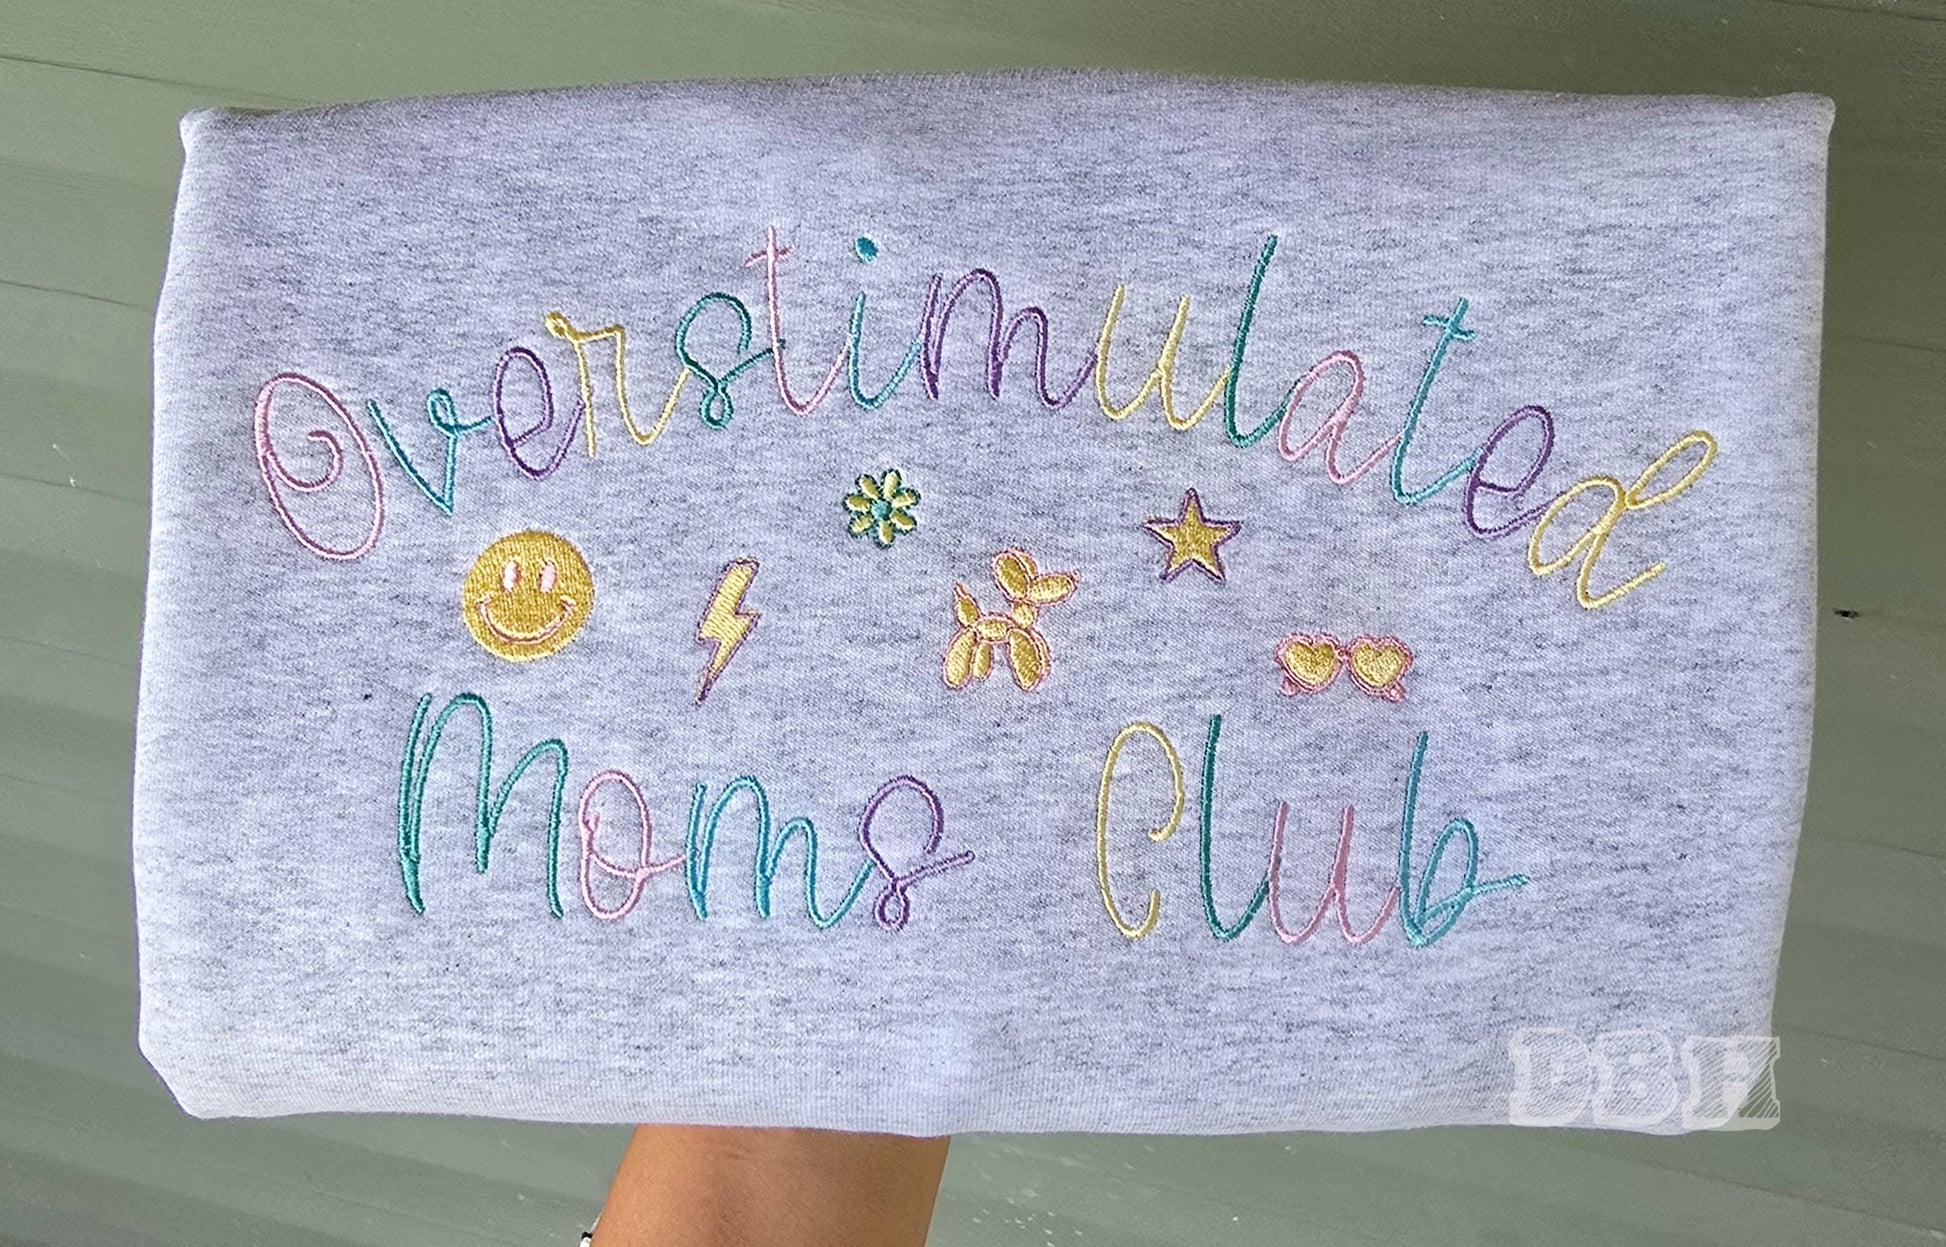 Overstimulated
Moms Club
DBH